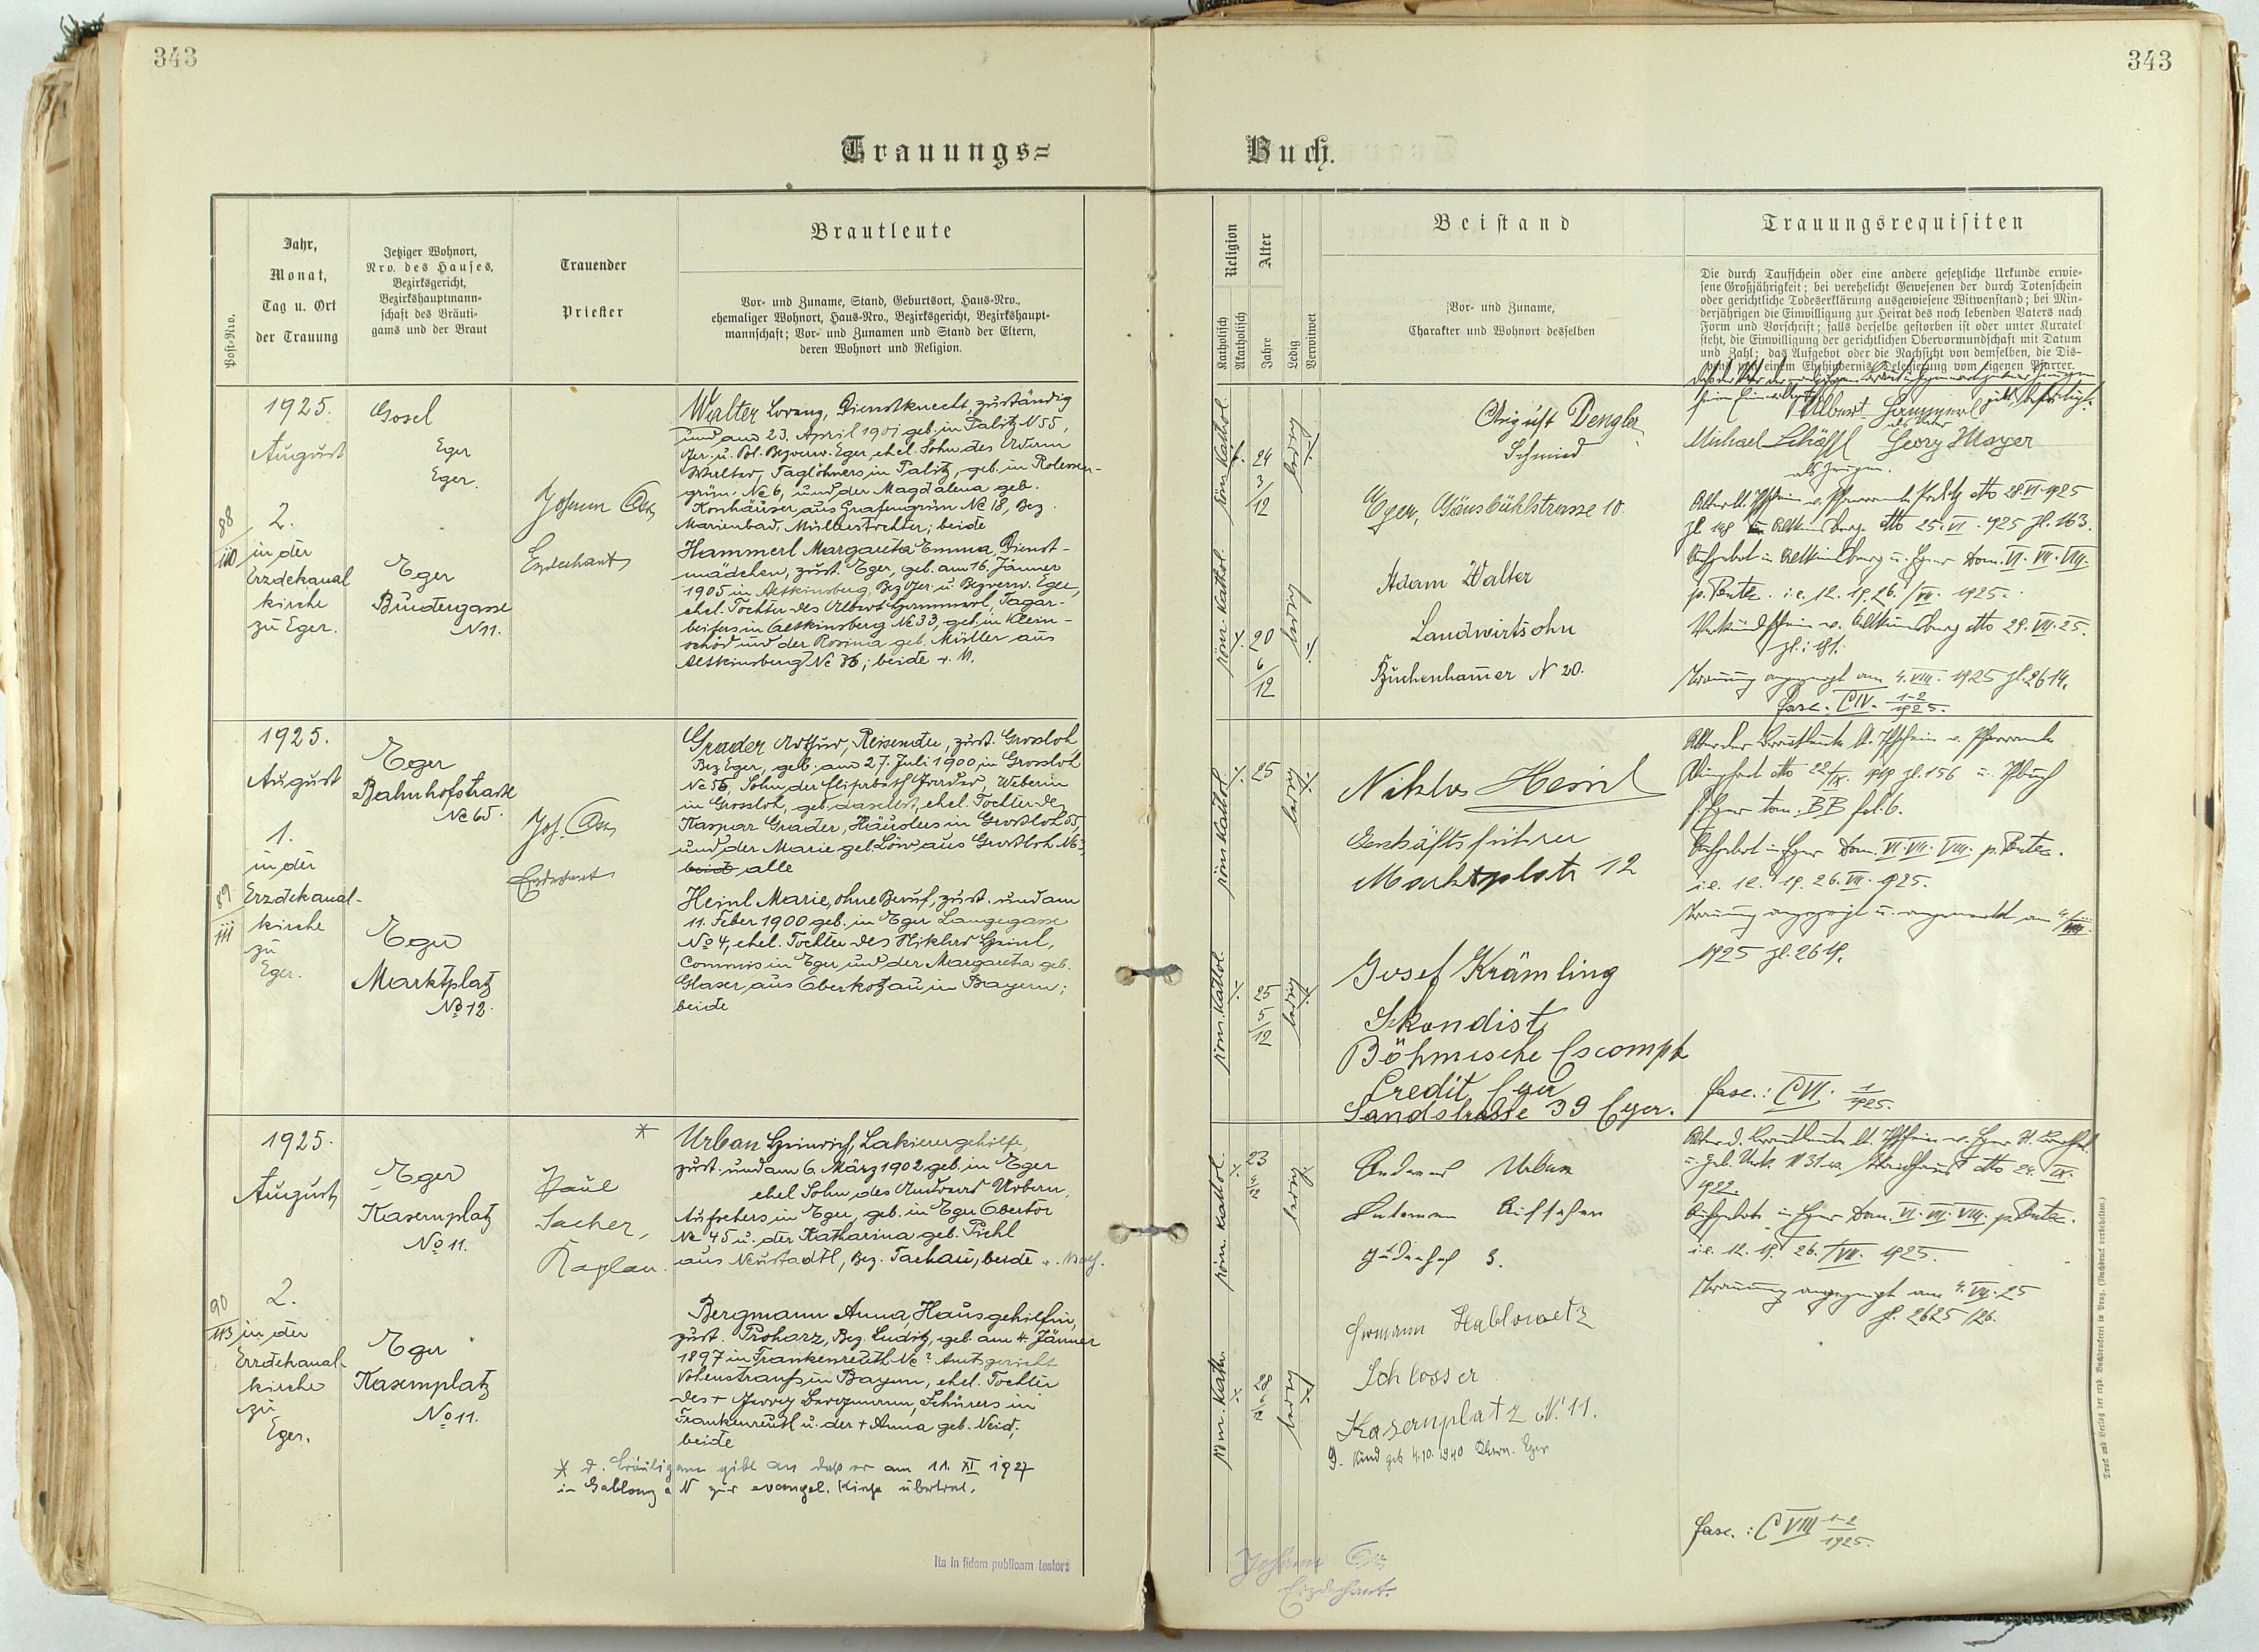 343
343
Trauungs=
Buch.
Post-Nro.
Jahr,
Monat,
Tag u. Ort
der Trauung
Jetziger Wohnort,
Nro. des Hauses,
Bezirksgericht,
Bezirkshauptmann-
schaft des Bräuti-
gams und der Braut
Trauender
Priester
Brautleute
Vor- und Zuname, Stand, Geburtsort, Haus-Nro.,
ehemaliger Wohnort, Haus-Nro., Bezirksgericht, Bezirkshaupt-
mannschaft; Vor- und Zunamen und Stand der Eltern,
deren Wohnort und Religion.
Religion
Katholisch
Akatholisch
Alter
Jahre
Ledig
Verwitwet
Beistand
Vor- und Zuname,
Charakter und Wohnort desselben
Trauungsrequisiten
Die durch Taufschein oder eine andere gesetzliche Urkunde erwie-
sene Großjährigkeit; bei verehelicht Gewesenen der durch Totenschein
oder gerichtliche Todeserklärung ausgewiesene Witwenstand; bei Min-
derjährigen die Einwilligung zur Heirat des noch lebenden Vaters nach
Form und Vorschrift; falls derselbe gestorben ist oder unter Kuratel
steht, die Einwilligung der gerichtlichen Obervormundschaft mit Datum
und Zahl; das Aufgebot oder die Nachsicht von demselben, die Dis-
pens von einem Ehehindernis, Delegierung vom eigenen Pfarrer.
88
110
1925.
August
2.
in der
Erzdekanal
kirche
zu Eger.
Gosel
Eger
Eger.
Eger
Bindergasse
N 11.
Johann
Erzdechant
Walter Lorenz, Dienstknecht, zuständig
und am 23. April 1901 geb. in Palitz N 55,
Ger. u. Pol. Bez verw. Eger, ehel. Sohn des Adam
Walter, Taglöhners in Palitz, geb. in Rolessen-
grün No 6, und der Magdalena geb.
Konhäuser aus Grafengrün No 18, Bez.
Marienbad, Müllerstochter; beide
Hammerl Margareta Emma, Dienst-
mädchen, zust. Eger, geb. am 16. Jänner
1905 in Altkinsberg, Bez Ger. u. Bezverw. Eger,
ehel. Tochter des Albert Hammerl, Tagar-
beiters in Altkinsberg No 33, geb. in Klein-
schöd und der Rosina geb. Müller aus
Altkinsberg No 36; beide
röm. kathol.
24
3/12
ledig
röm. kathol.
20
6/12
ledig
August Dengler
Schmied
Eger, Gänsbühlstrasse 10.
Adam Walter
Landwirtsohn
Buchenhamer N 20.
Albert Hammerl
als Vater
Michael Schöffl Georg Mayer
als Zeugen.
dtto 28.VI.1925
Zl. 148 dtto 25.VI.925 Zl. 163.
Aufgebot in Altkinsberg u. Eger Dom. VI. VII. VIII.
p. Pentec. i.e. 12. 19. 26./VII. 1925.
Verkündschein v. Altkinsberg dtto 29.VII.25.
Trauung angezeigt am 4.VIII.1925 Zl. 2614.
fasc. CIV. 1-2/1925.
89
111
1925.
August
1.
in der
Erzdekanal-
kirche
zu
Eger.
Eger
Bahnhofstrasse
No 65.
Eger
Marktplatz
No 12.
Joh.
Erzdechant
Grader Arthur, Reisender, zust. Grossloh
Bez Eger, geb. am 27. Juli 1900 in Grossloh
No 55, Sohn der Elisabeth Grader, Weberin
in Grossloh, geb. daselbst, ehel. Tochter des
Kaspar Grader, Häuslers in Grossloh 55,
und der Marie geb. Löw aus Grossloh
beide alle
Heinl Marie, ohne Beruf, zust. und am
11. Feber 1900 geb. in Eger Langegasse
No 4, ehel. Tochter des Niklas Heinl,
Commis in Eger und der Margareta geb.
Glaser aus Oberkotzau in Bayern;
beide
röm kathol
25
ledig
röm. kathol.
25
5/12
ledig
Niklas Heinl
Geschäftsführer
Marktplatz 12
Josef Krämling
Skondist
Böhmische Escompt
Credit Eger
Sandstrasse 39 Eger.
Alter der Brautleute lt. Tfschein v. Pfarramte
dtto 22/IX. 1919 Zl. 156 u. Tfbuch
f. Eger tom. BB fol. 6.
Aufgebot in Eger Dom. VI. VII. VIII. p. Pentec.
i.e. 12. 19. 26. VII. 1925.
Trauung angezeigt u. angemerkt am 4/VIII.
1925 Zl. 2619.
fasc.: CVI. 1/1925.
90
113
1925.
August
2.
in der
Erzdekanal-
kirche
zu
Eger.
Eger
Kasernplatz
No 11.
Eger
Kasernplatz
No 11.
Paul
Sacher,
Kaplan.
* Urban Heinrich, Lakierergehilfe,
zust. und am 6. März 1902 geb. in Eger
ehel Sohn des Andreas Urban,
Aufsehers in Eger, geb. in Eger Obertor
No 45 u. der Katharina geb. Pichl
aus Neustadtl, Bez. Tachau, beide r. kath.
Bergmann Anna, Hausgehilfin,
zust. Proharz, Bez. Luditz, geb. am 4. Jänner
1897 in Frankenreuth No ? Amtsgericht
Vohenstrauß in Bayern, ehel. Tochter
des + Georg Bergmann, Schürers in
Frankenreuth u. der + Anna geb. Neid;
beide
* d. Bräutigam gibt an daß er am 11. XI 1927
in Gablonz a N zur evangel. Kirche übertrat.
röm. kathol.
23
4/12
ledig
röm. kath.
28
ledig
Andreas Urban
Aufseher
3.
Hermann Hablowetz
Schlosser
Kasernplatz N. 11.
9. Kind geb 4.10.1940 Eger
Alter d. Brautleute lt. Tfschein v. Eger
dtto 24. IX.
1922.
Aufgebot in Eger Dom. VI. VII. VIII. p. Pentec.
i.e. 12. 19. 26./VII. 1925.
Trauung angezeigt am 4.VIII.25
Zl. 2625/26.
fasc.: C VIII 1-2/1925.
Ita in fidem publicam testor:
Johann
Erzdechant.
Druck und Verlag der erzb. Buchdruckerei in Prag. (Nachdruck vorbehalten.)